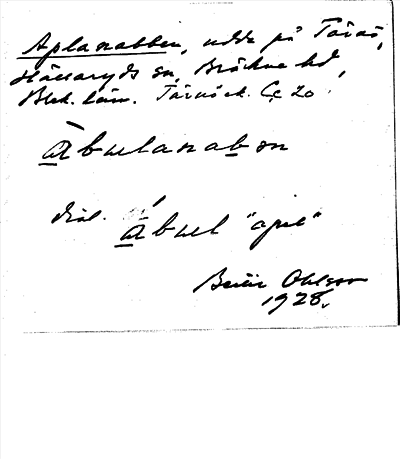 Aplanabben, udde på Tärnö,
Hällaryds sn, Bräkne hd,
Blek. län. Tärnö ek. Cç 20.
àbuulanabən
dial. ábuul "apel"
Bror Ohlsson
1928.